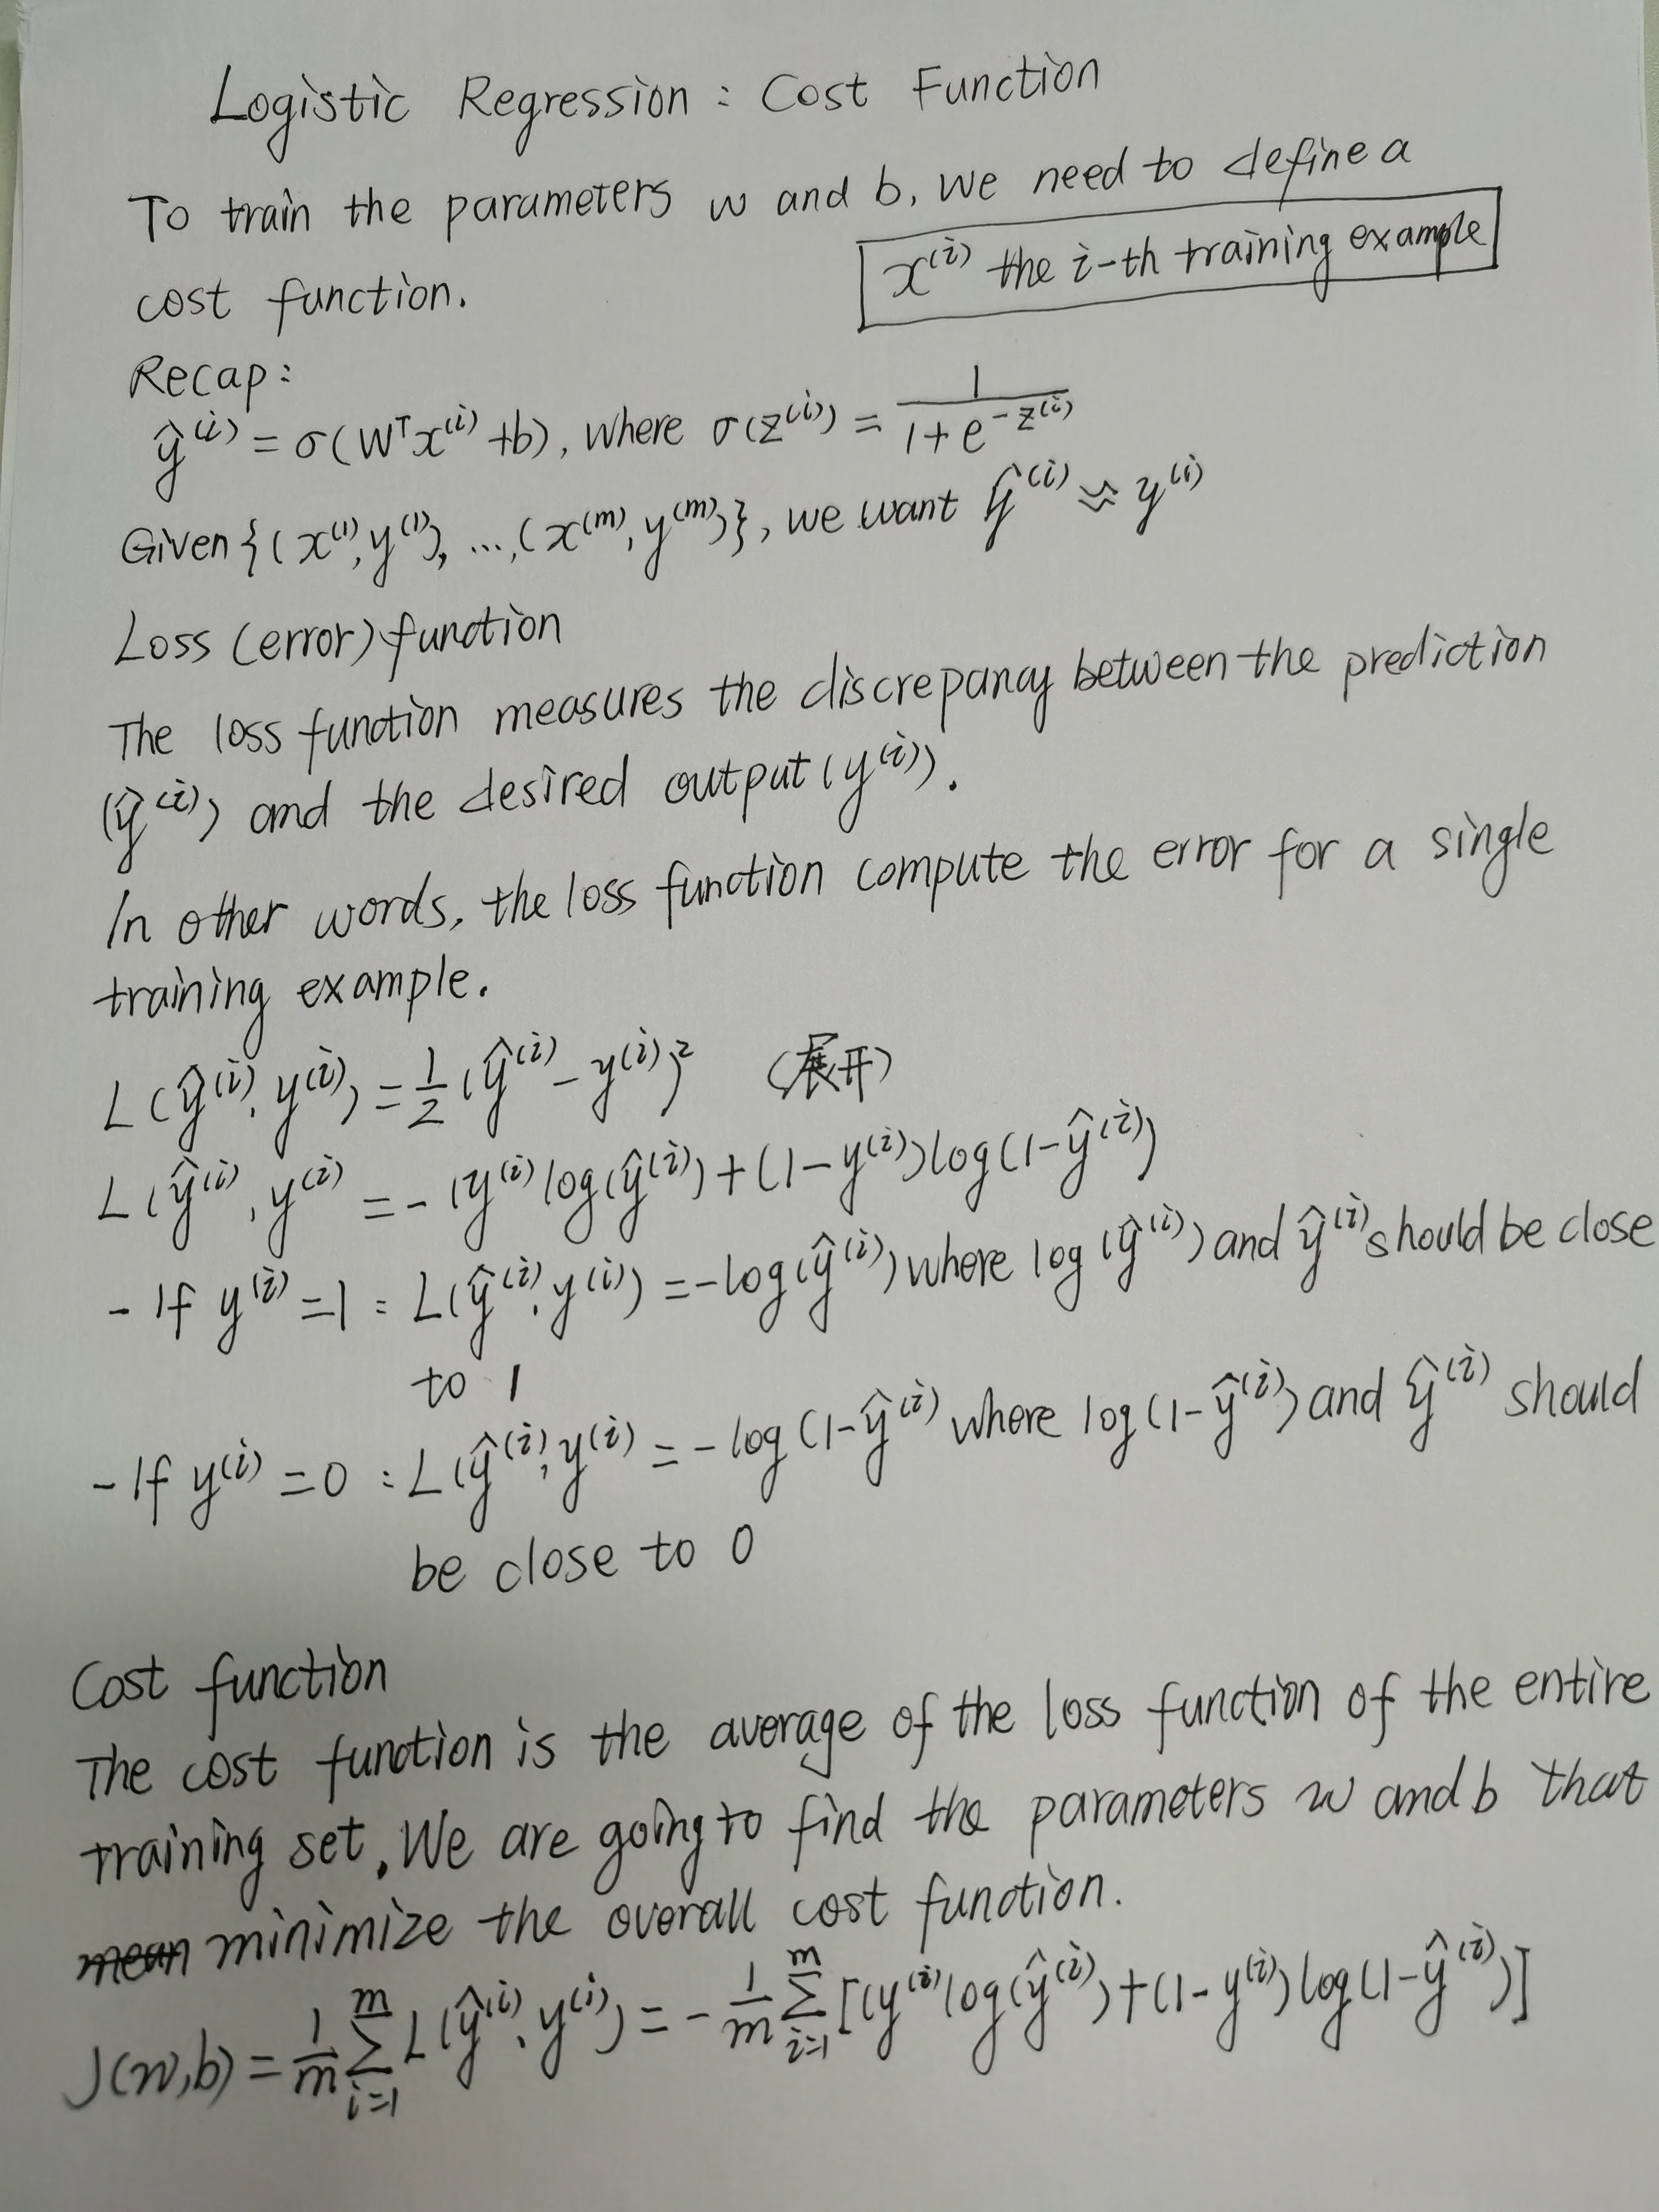 Logistic Regression: Cost Function
To train the parameters w and b, we need to define a
cost function.
x^(i) the i-th training example
Recap:
ŷ^(i) = σ(W^T x^(i) + b), where σ(z^(i)) = 1/(1 + e^-z^(i))
Given {(x^(1), y^(1)), ..., (x^(m), y^(m))}, we want ŷ^(i) ≈ y^(i)
Loss (error) function
The loss function measures the discrepancy between the prediction
(ŷ^(i)) and the desired output (y^(i)).
In other words, the loss function compute the error for a single
training example.
L(ŷ^(i), y^(i)) = 1/2 (ŷ^(i) - y^(i))^2 (展开)
L(ŷ^(i), y^(i) = -(y^(i) log(ŷ^(i)) + (1 - y^(i)) log(1 - ŷ^(i))
- If y^(i) = 1 : L(ŷ^(i), y^(i)) = -log(ŷ^(i)) where log(ŷ^(i)) and ŷ^(i) should be close
to 1
- If y^(i) = 0 : L(ŷ^(i), y^(i) = -log(1 - ŷ^(i) where log(1 - ŷ^(i)) and ŷ^(i) should
be close to 0
Cost function
The cost function is the average of the loss function of the entire
training set. We are going to find the parameters w and b that
mean minimize the overall cost function.
J(w,b) = 1/m ∑_{i=1}^{m} L(ŷ^(i), y^(i)) = - 1/m ∑_{i=1}^{m} [(y^(i) log(ŷ^(i)) + (1 - y^(i)) log(1 - ŷ^(i))]